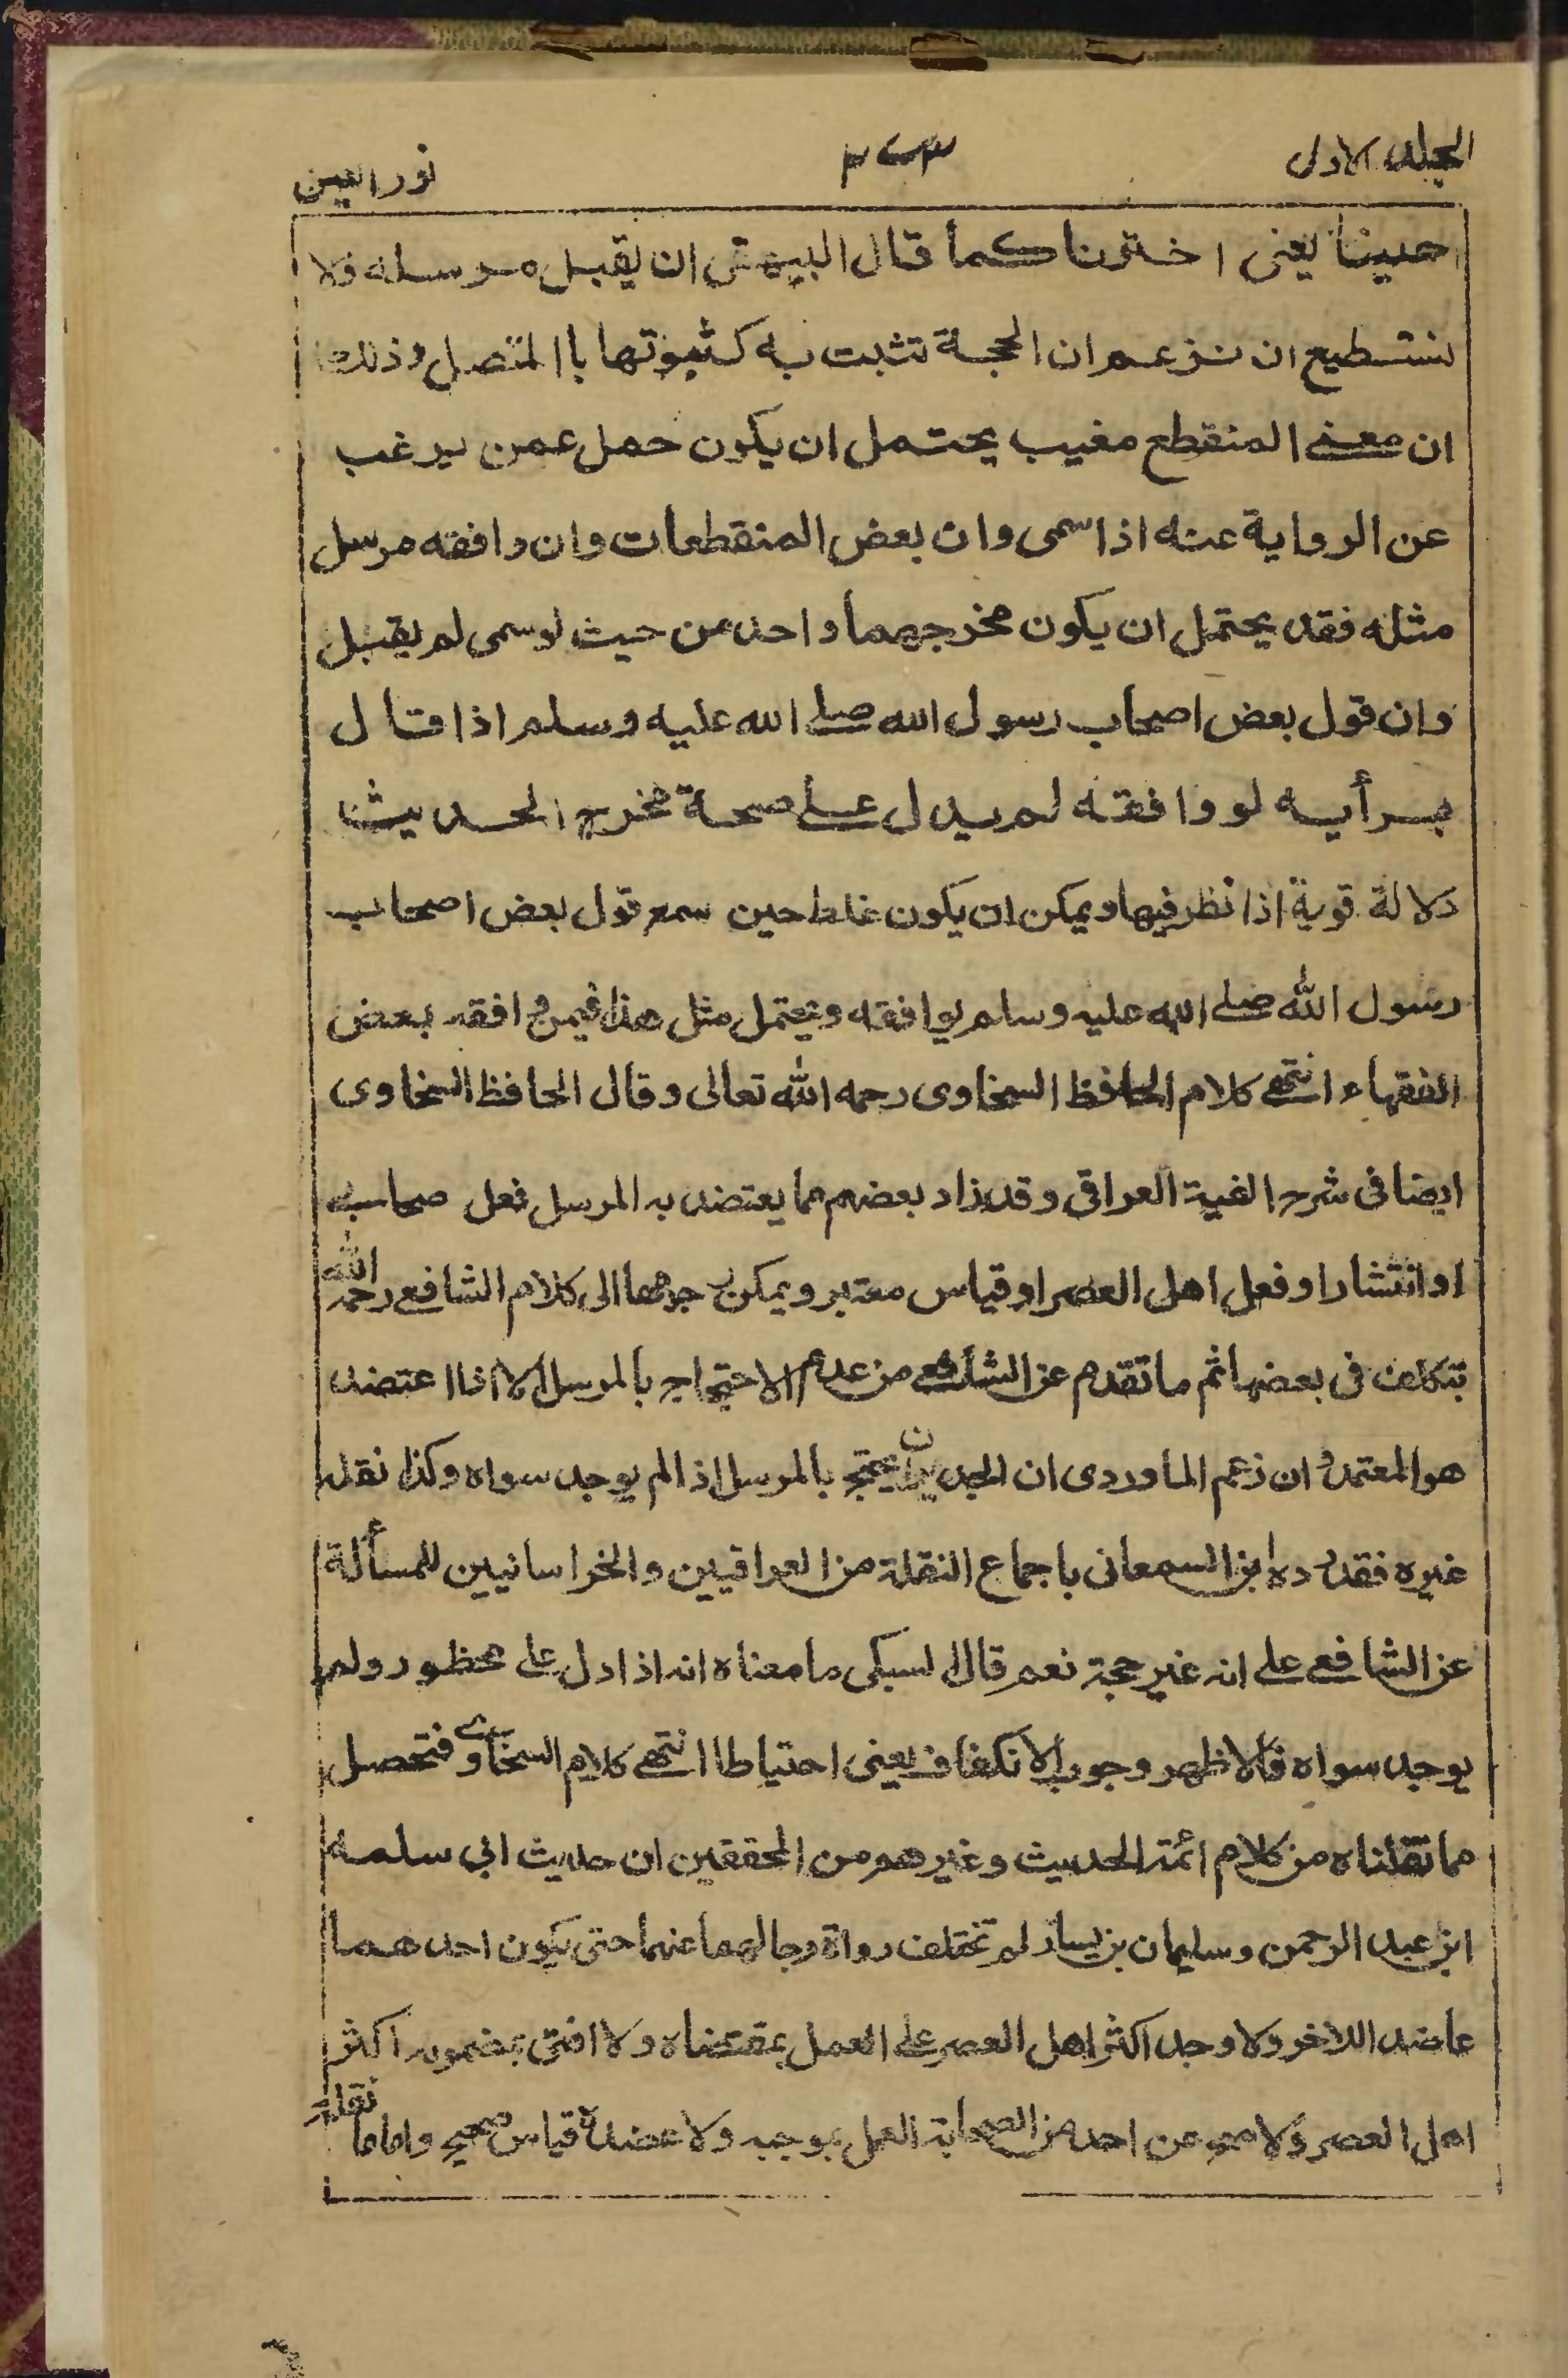 المجلد الاول
٣٤٣
نور العين
احببنا يعنى اخترنا كما قال البيهقى ان يقبل مرسله ولا
نستطيع ان نزعم ان الحجة تثبت به كثبوتها باالمتصل وذلك
ان معنى المنقطع مغيب يحتمل ان يكون حمل عمن يرغب
عن الرواية عنه اذا سمى وان بعض المنقطعات وان وافقه مرسل
مثله فقد يحتمل ان يكون مخرجهما واحد من حيث لو سمى لم يقبل
وان قول بعض اصحاب رسول الله صلى الله عليه وسلم اذا قال
برأيه لو وافقه لم يدل على صحة مخرج الحديث
دلالة قوية اذا نظر فيها ويمكن ان يكون غلط حين سمع قول بعض اصحاب
رسول الله صلى الله عليه وسلم يوافقه ويحتمل مثل هذا فيمن وافقه بعض
الفقهاء انتهى كلام الحافظ السخاوى رحمه الله تعالى وقال الحافظ السخاوى
ايضا فى شرح الفية العراقى وقد زاد بعضهم مما يعتضد به المرسل فعل صحابى
او انتشار او فعل اهل العصر او قياس معتبر ويمكن رجوعها الى كلام الشافعى رحمه الله
بتكلف فى بعضها ثم ما تقدم عن الشافعى من عدم الاحتجاج بالمرسل الا اذا اعتضد
هو المعتمد وان زعم الماوردى ان الجديد ان يحتج بالمرسل اذا لم يوجد سواه وكذا نقله
غيره فقد رده ابن السمعانى باجماع النقلة من العراقيين والخراسانيين للمسألة
عن الشافعى على انه غير حجة نعم قال السبكى ما معناه انه اذا دل على محظور ولم
يوجد سواه فالاظهر وجوب الانكفاف يعنى احتياطا انتهى كلام السخاوى فتحصل
مما نقلناه من كلام ائمة الحديث وغيرهم من المحققين ان حديث ابي سلمه
ابن عبد الرحمن وسليمان بن يسار لم تختلف رواة رجالهما عنهما حتى يكون احدهما
عاضد اللاخر ولا وجد اكثر اهل العصر على العمل بمقتضاه ولا افتى بمضمونه اكثر
اهل العصر ولا صح عن احد من الصحابة العمل بموجبه ولا عضده قياس صحيح واما ما نقله